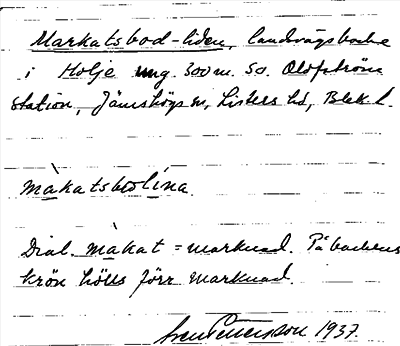 Markatsbod-liden, landsvägsbacke
i Holje ung. 300 m. So. Olofström
station, Jämshögs sn, Listers hd, Blek. l.
màkatsbolína.
Dial. màkat = marknad. På backens
krön hölls förr marknad.
Sven Pettersson 1937.